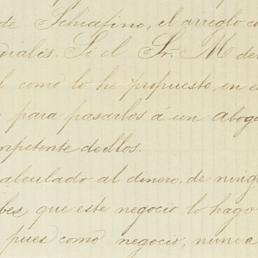 de Schiafino, el arreglo co
diales. Si el Sr. M de
l como lo he propuesto, en e
para pasarlos á un aboga
mpetente de ellos.
alculado al dinero, de ning
bes, que este negocio lo hago
pues como negocio, nunca